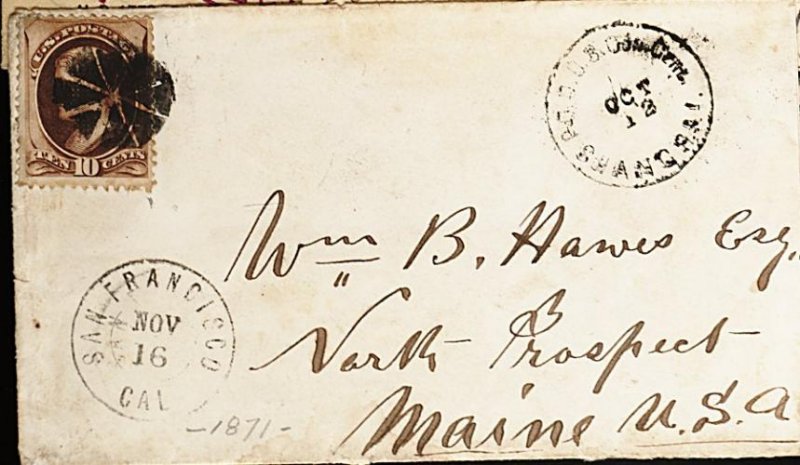 U.S. POSTAGE
TEN 10 CENTS
U.S. Con. Genl.
SHANGHAI
OCT
Wm B. Hawes Esq.
North Prospect
Maine U.S.A
SAN FRANCISCO
NOV
16
CAL
-1871-